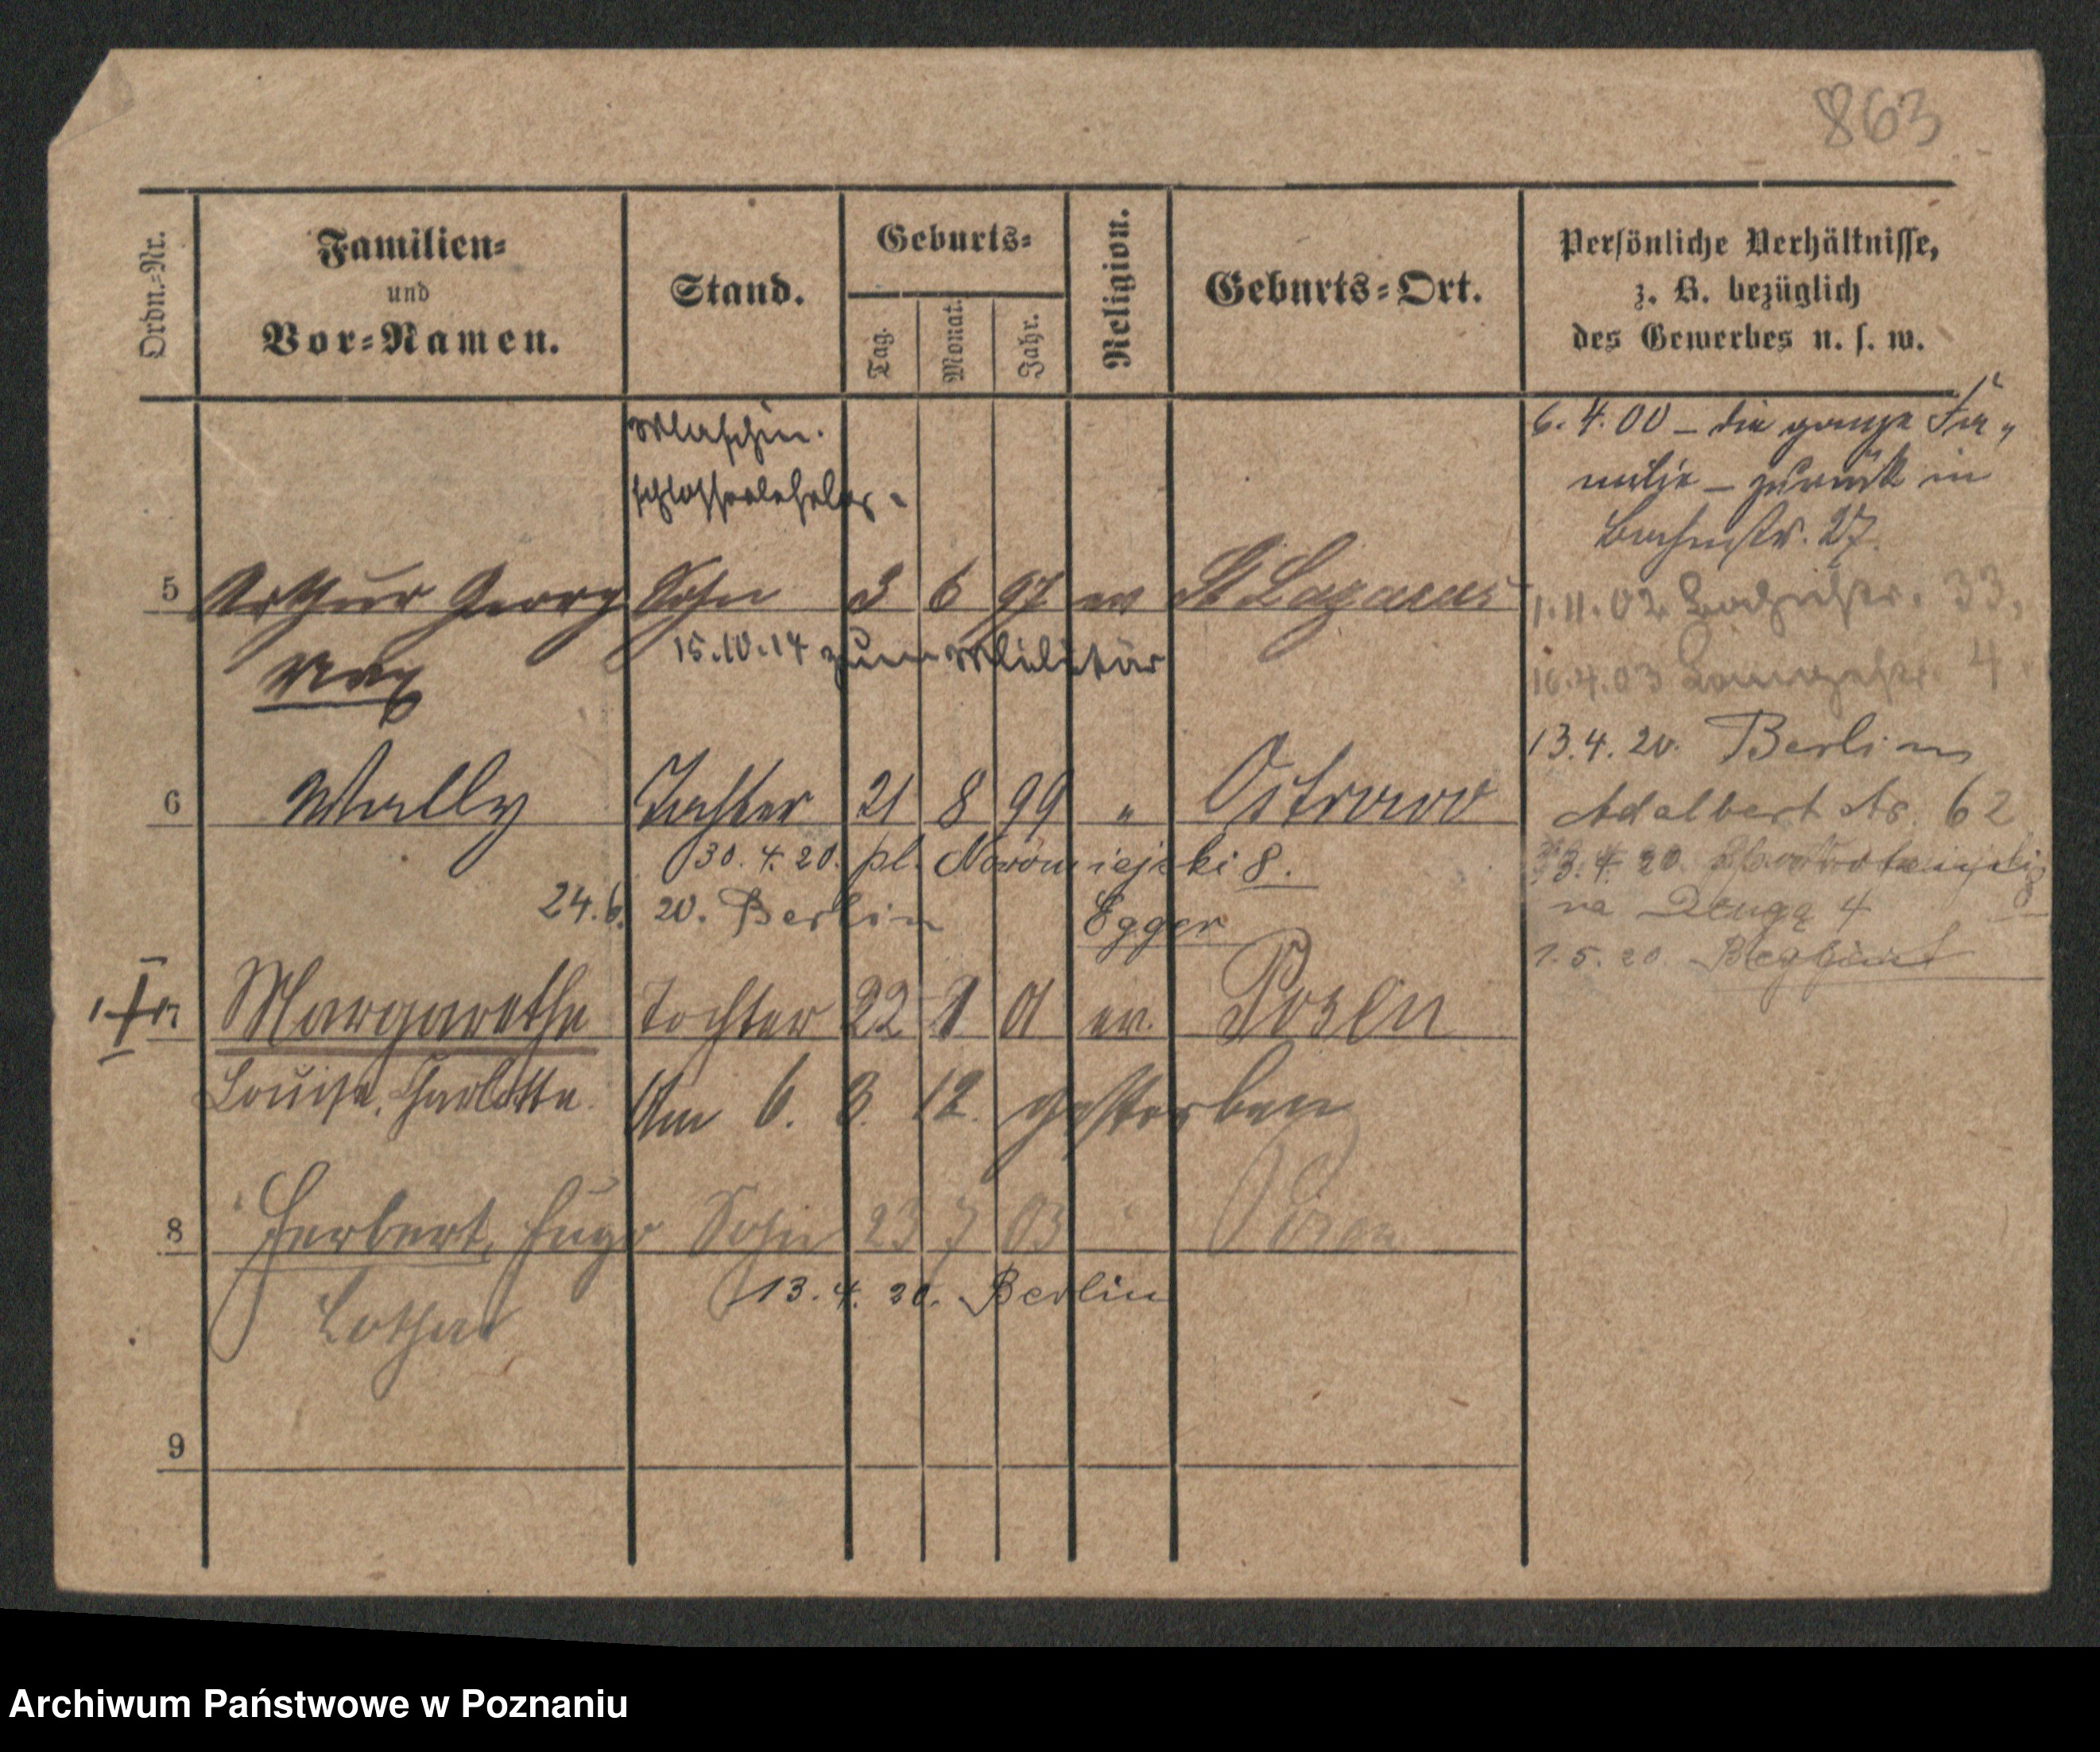 863
Ordn.-Nr.
Familien-
und
Vor-Namen.
Stand.
Geburts-
Tag.
Monat.
Jahr.
Religion.
Geburts-Ort.
Persönliche Verhältnisse,
z. B. bezüglich
des Gewerbes u. s. w.
Maschin.
schlosserlehrling
5 Arthur Georg Sohn 3 6 97 ev St Lazarus
Max
15.10.14 zum Militär
6 Wally Tochter 21 8 99 " Ostrowo
30.4.20. pl. Nowomiejski 8.
24.6. 20. Berlin Egger
Margarethe Tochter 22 1 01 ev. Posen
Louise, Charlotte.
Am 6. 3. 12. gestorben
8 Herbert, Hugo Sohn 23 7 03 " Posen
Lothar
13.4.20. Berlin
9
6.4.00 – die ganze Fa-
milie – zurück in
27.
1.11.02 33,
16.4.03 4
13.4.20. Berlin
Adalbertstr. 62
3.4.20.
na Długą 4
1.5.20.
Archiwum Państwowe w Poznaniu